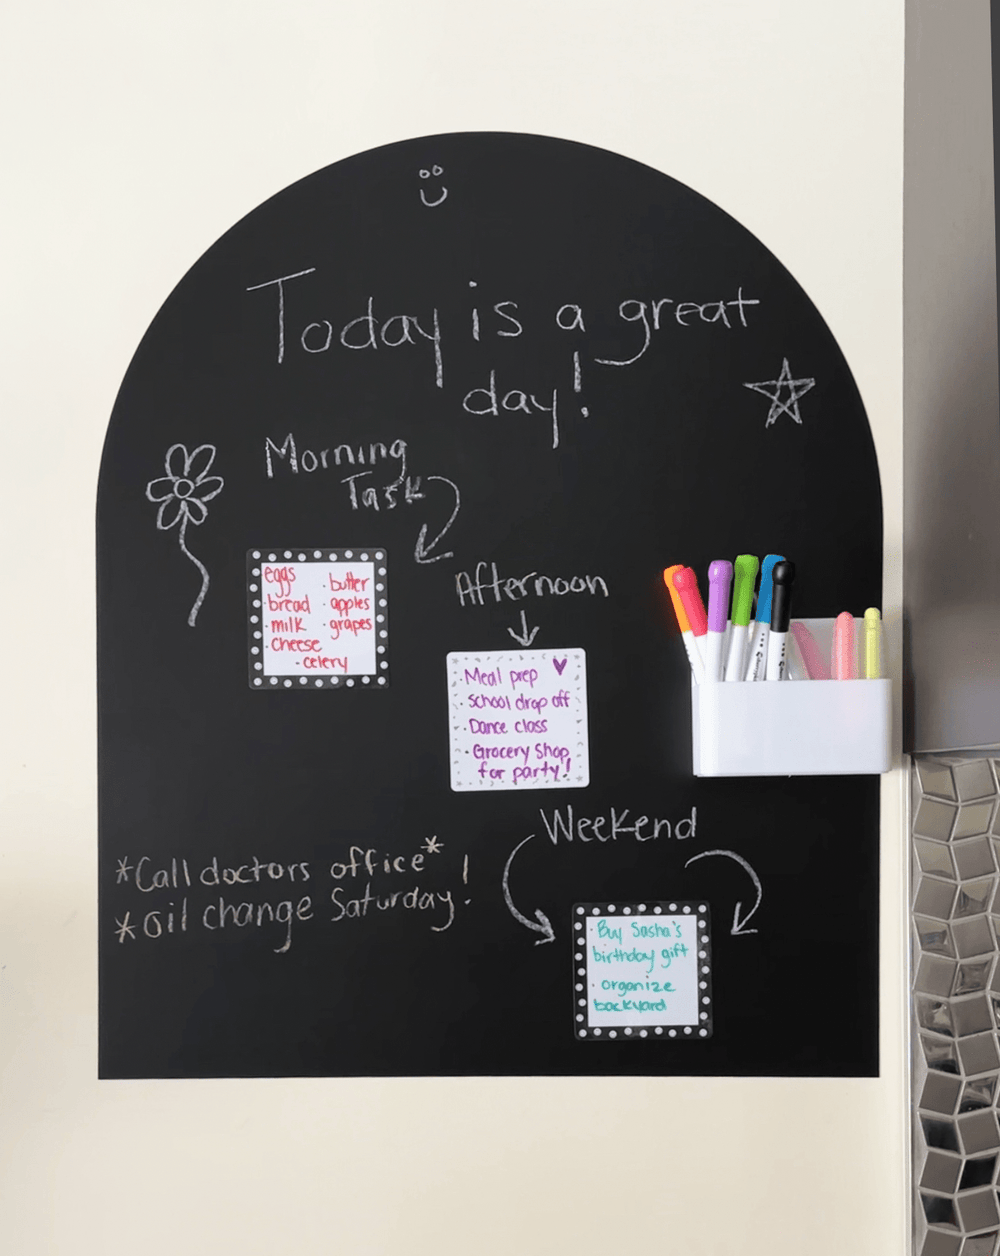 Today is a great
day!
Morning
Task
eggs
· bread
· milk
· cheese
· celery
· butter
· apples
· grapes
Afternoon
· Meal prep
· School drop off
· Dance class
· Grocery Shop
for party!
Weekend
*Call doctors office*
*oil change Saturday!
· Buy Sasha's
birthday gift
· organize
backyard